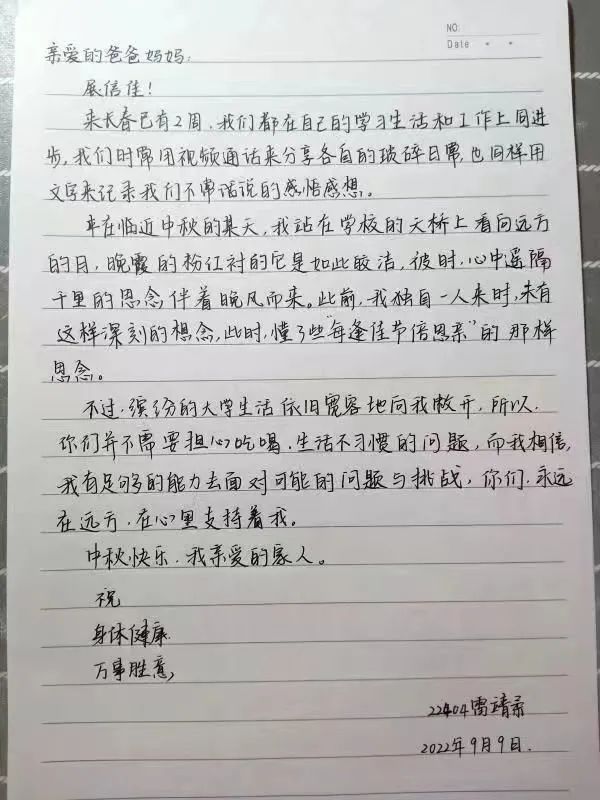 NO.
Date
亲爱的爸爸妈妈:
展信佳!
来长春已有2周,我们都在自己的学习生活和工作上同进
步,我们时常用视频通话来分享各自的琐碎日常,也同样用
文字来记录我们不常话说的感悟感想。
早在临近中秋的某天,我站在学校的天桥上看向远方
的月,晚霞的粉红衬的它是如此皎洁,彼时,心中遥隔
千里的思念伴着晚风而来。此前,我独自一人来时,未有
这样深刻的想念,此时,懂了些“每逢佳节倍思亲”的那样
思念。
不过,缤纷的大学生活依旧宽容地向我敞开,所以,
你们并不需要担心吃喝、生活不习惯的问题,而我相信,
我有足够的能力去面对可能的问题与挑战,你们,永远
在远方,在心里支持着我。
中秋快乐,我亲爱的家人。
祝
身体健康
万事胜意
22404雷靖
2022年9月9日.